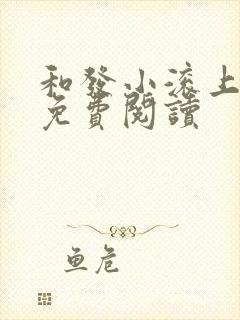 和發小滚上
免費閱讀
鱼危